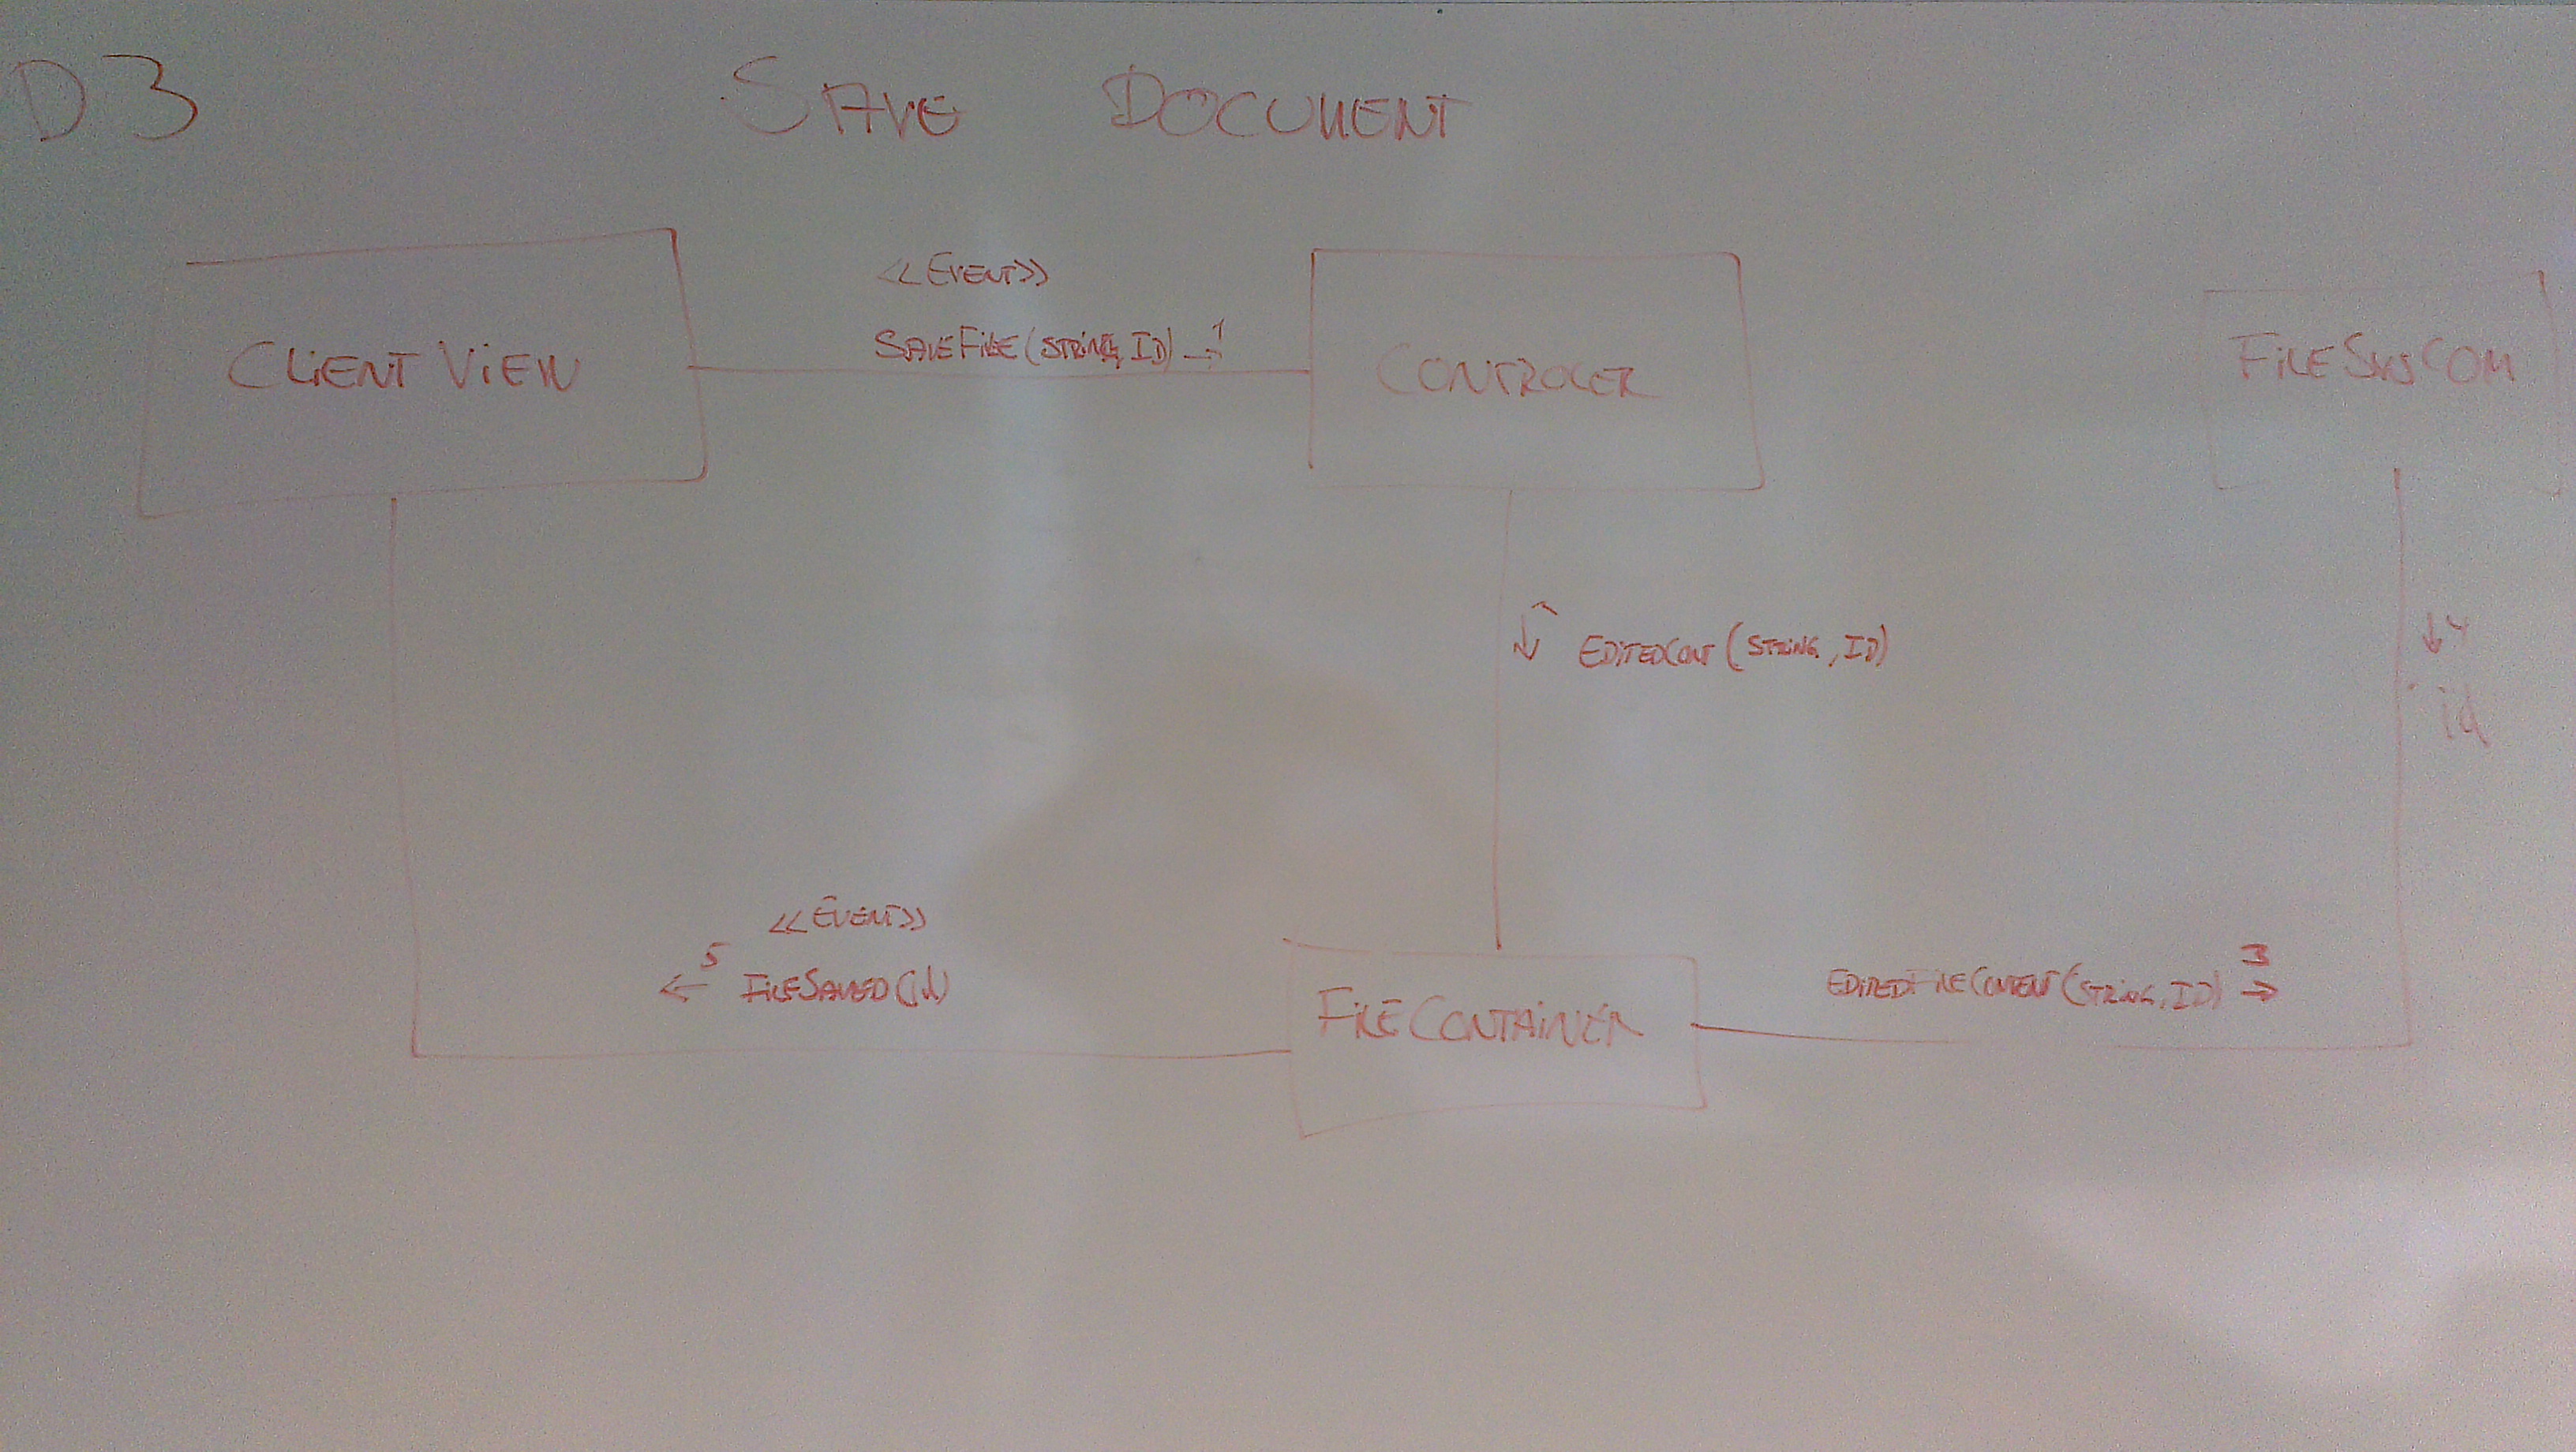 D3
SAVE DOCUMENT
<<EVENT>>
SAVEFILE(STRING, ID) 1
CLIENT VIEW
CONTROLER
FILESYSCOM
EDITEDCONT(STRING, ID)
4
id
<<EVENT>>
5 FILESAVED(id)
FILECONTAINER
EDITEDFILECONTENT(STRING, ID) 3